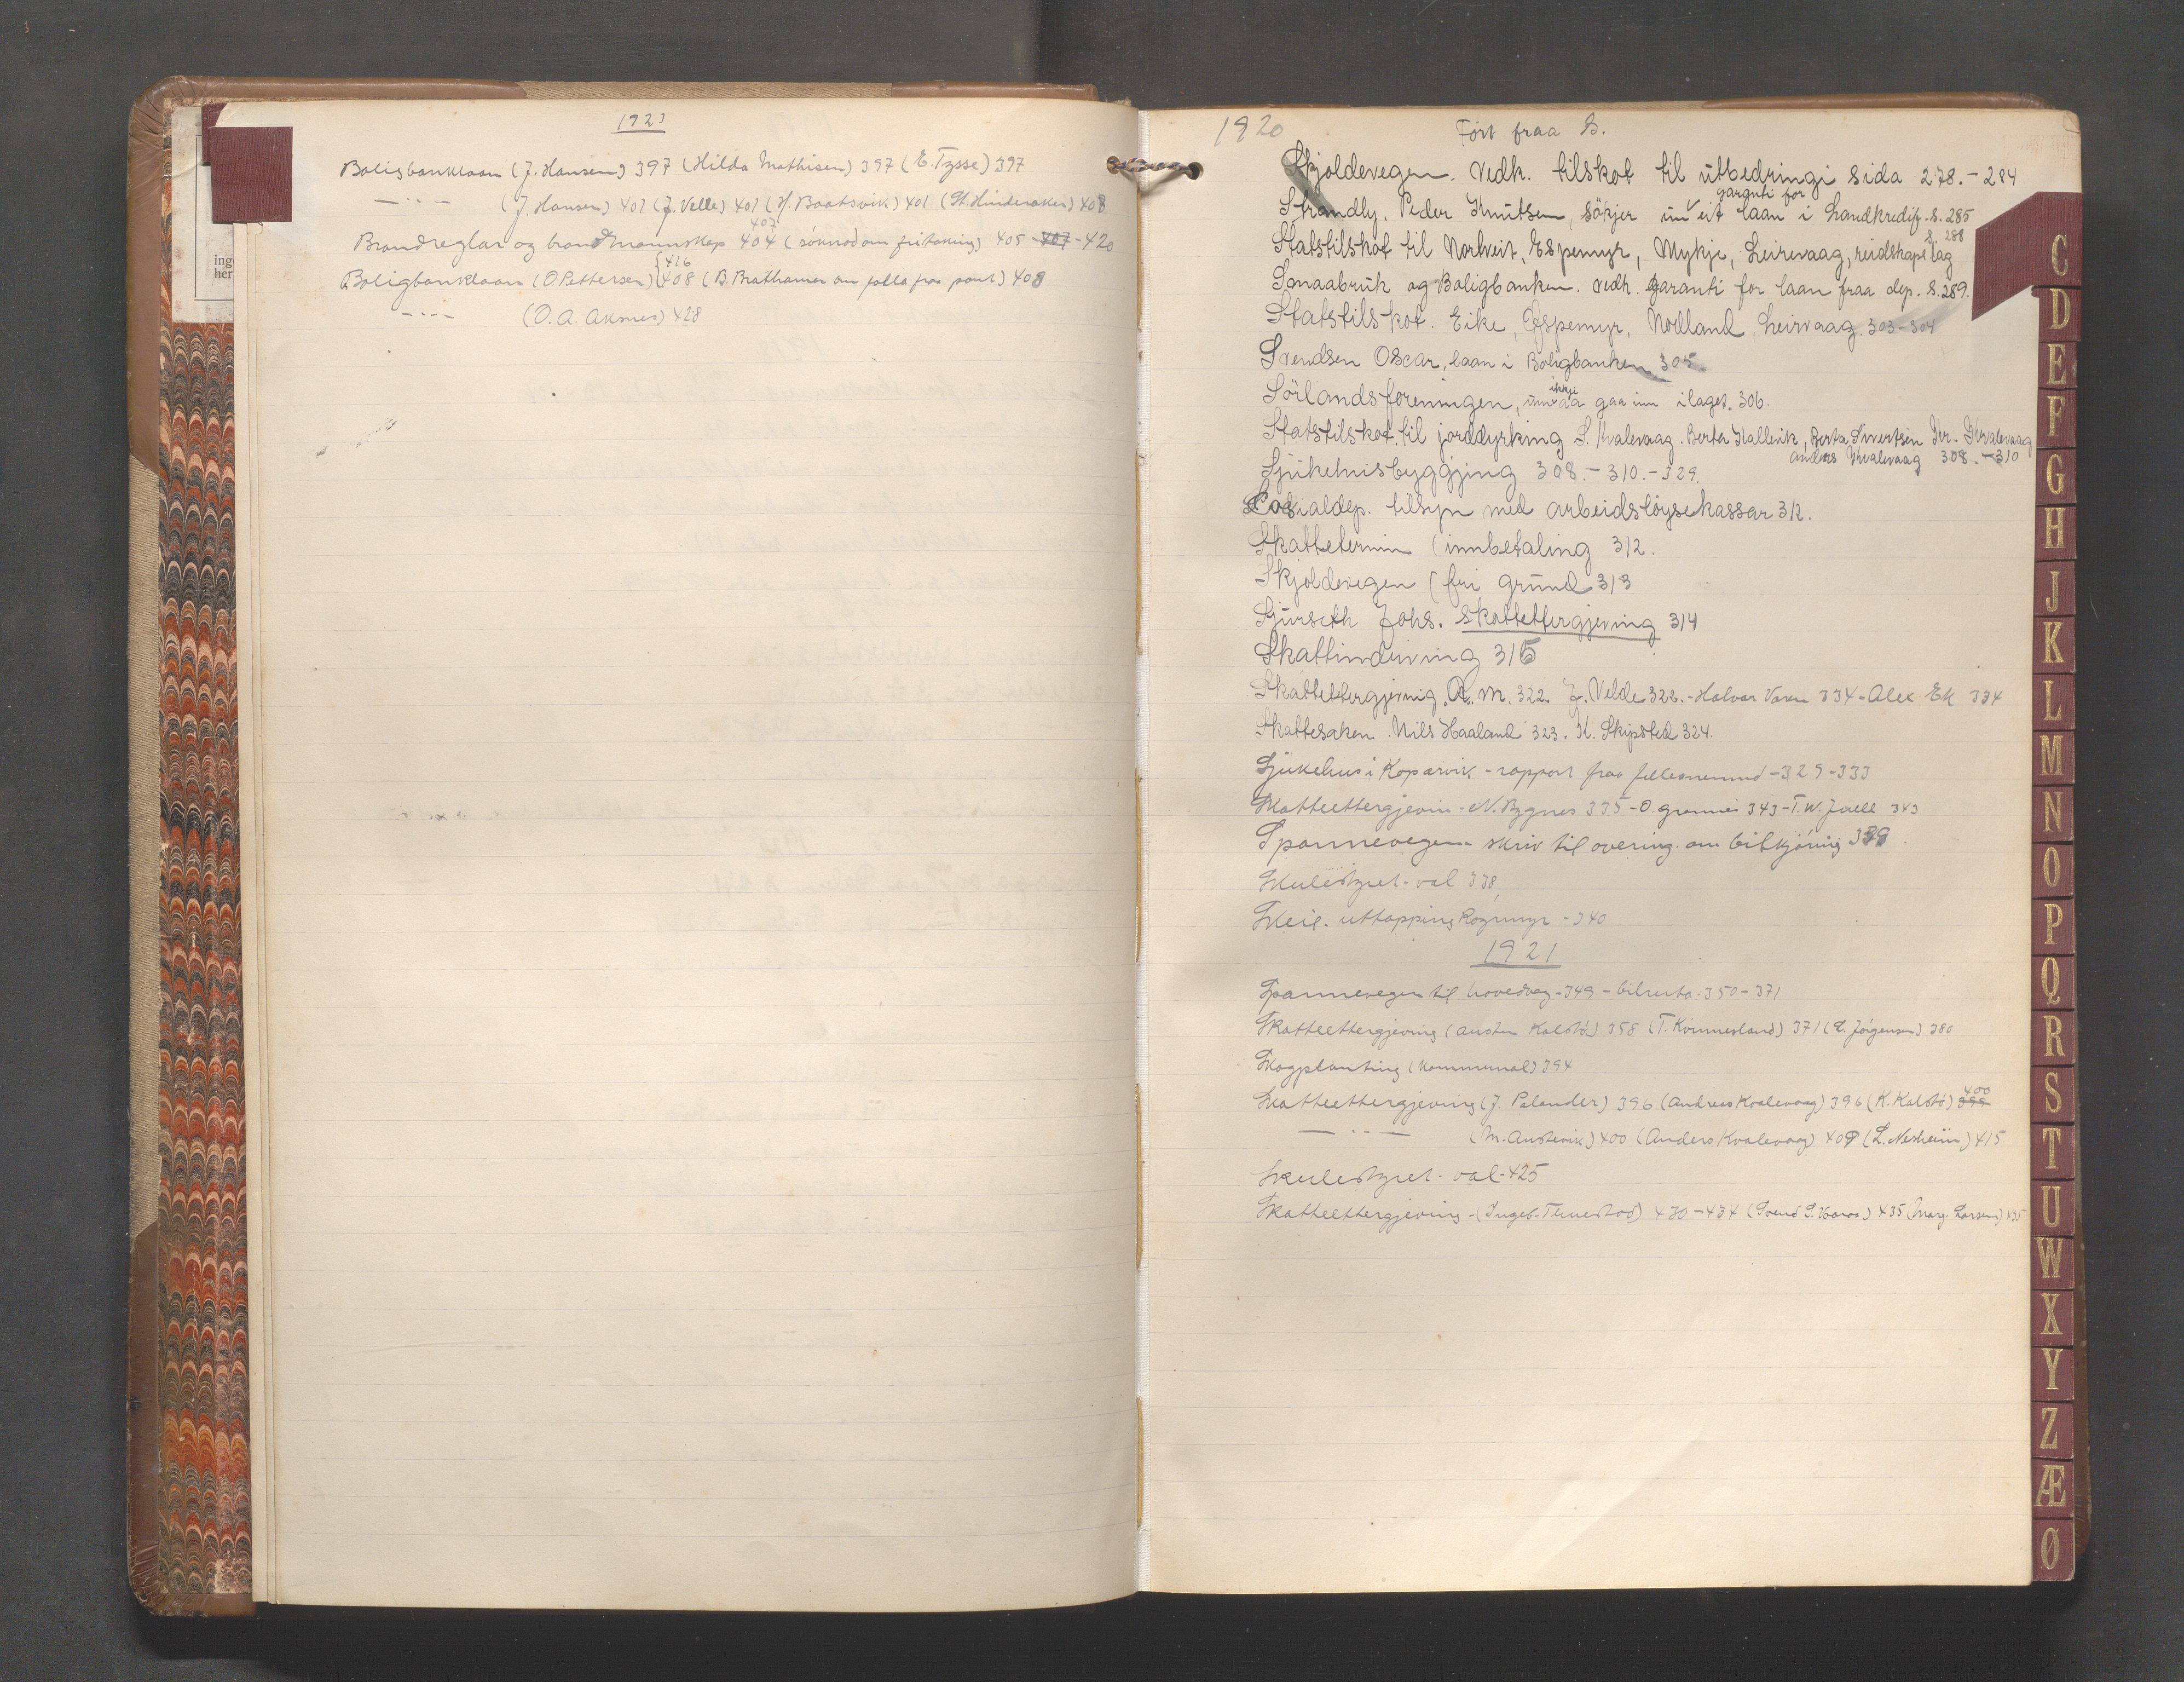 1921
Boligbanklaan (J. Hansen) 397 (Hilda Mathisen) 397 (E. Tysse) 397
— · · — (J. Hansen) 401 (J. Velle) 401 (H. Baatsvik) 401 (St. Hinderaker) 408
407
Brandreglar og brandmannskap 404 (söknad om fritaking) 405 - 407 - 420
416
Boligbanklaan (O. Pettersen) 408 (B. Brathammer om falla fraa pant) 408
— · · — (O. A. Aksnes) 428
ing
her
1920 Fört fraa S.
Skjoldevegen. Vedk. tilskot til utbedringi sida 278. - 284
garanti for
Strandly, Peder Knutsen, sökjer um eit laan i Landkredit. s. 285
s. 288
Statstilskot til Nortveit, Espemyr, Mykje, Leirvaag, reidskapslag
Smaabruk og Boligbanken. vedk. garanti for laan fraa dep. s. 289.
Statstilskot. Eike, Espemyr, Nodland, Leirvaag. 303-304
Svendsen Oscar, laan i Boligbanken 305.
ikkje
Sörlandsforeningen, um aa gaa inn i laget. 306.
Statstilskot til jorddyrking S. Kvalevaag. Berta Hallevik, Berta Sivertsen Kvalevaag
Anders Kvalevaag 308. - 310
Sjukehusbyggjing 308. - 310. - 329.
Sosialdep. tilsyn med arbeidslöysekassar 312.
Skattetermin (innbetaling 312.
Skjoldevegen (fri grund 313
Sjurseth Johs. skattettergjeving 314
Skattinndriving 315
Skattettergjeving. A. M. 322. J. Velde 322. - Halvor Varen 334 - Alex Ek 334
Skattesaken. Nils Haaland 323. K. Skipsted 324.
Sjukehus i Kopervik - rapport fraa fellesnemnd - 329-333
Skatteettergjevin - N. Bygnes 335 - O. Grønnes 343 - T. W. Jaell 343
Spannevegen skriv til overing. om bilkjöring 339.
Skulestyret - val 338
Skeie. uttapping Rogmyr - 340
1921
Spannevegen til hovedveg - 349 - bilruta - 350 - 371
Skatteettergjeving (Austen Kalstö) 358 (T. Kvinnesland) 371 (L. Jörgensen) 380
Skogplanting (kommunal) 394
400
Skatteettergjeving (J. Palander) 396 (Andreas Kvalevaag) 396 (K. Kalstö) 399
— · · — (M. Austevik) 400 (Anders Kvalevaag) 409 (L. Nesheim) 415
Skulestyret - val - 425
Skatteettergjeving - (Ingeb. Tuestad) 430 - 434 (Svend S. Vaaro) 435 (Marg. Larsen) 435
C
D
E
F
G
H
J
K
L
M
N
O
P
Q
R
S
T
U
W
X
Y
Z
Æ
Ø